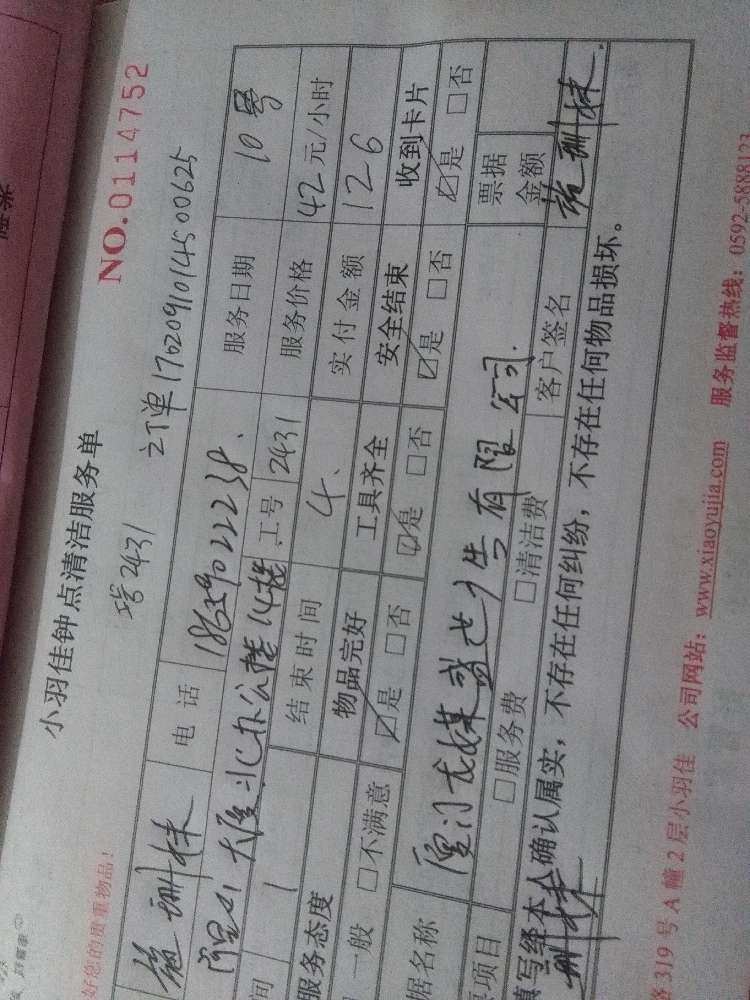 小羽佳钟点清洁服务单
NO.0114752
2431 订单1702091014500625
好您的贵重物品!
施珊妹 电话 18659022238. 服务日期 10号
阿里山大厦北办公楼14楼 工号 2431 服务价格 42元/小时
间 1 结束时间 4. 实付金额 126
服务态度 物品完好 工具齐全 安全结束 收到卡片
一般 □不满意 ☑是 □否 ☑是 □否 ☑是 □否 ☑是 □否
据名称 厦门龙媒 广告有限公司. 票据金额
项目 □服务费 □清洁费 客户签名 施珊妹.
填写经本人确认属实,不存在任何纠纷,不存在任何物品损坏。
珊妹
路319号A幢2层小羽佳 公司网站:www.xiaoyujia.com 服务监督热线:0592-5888123